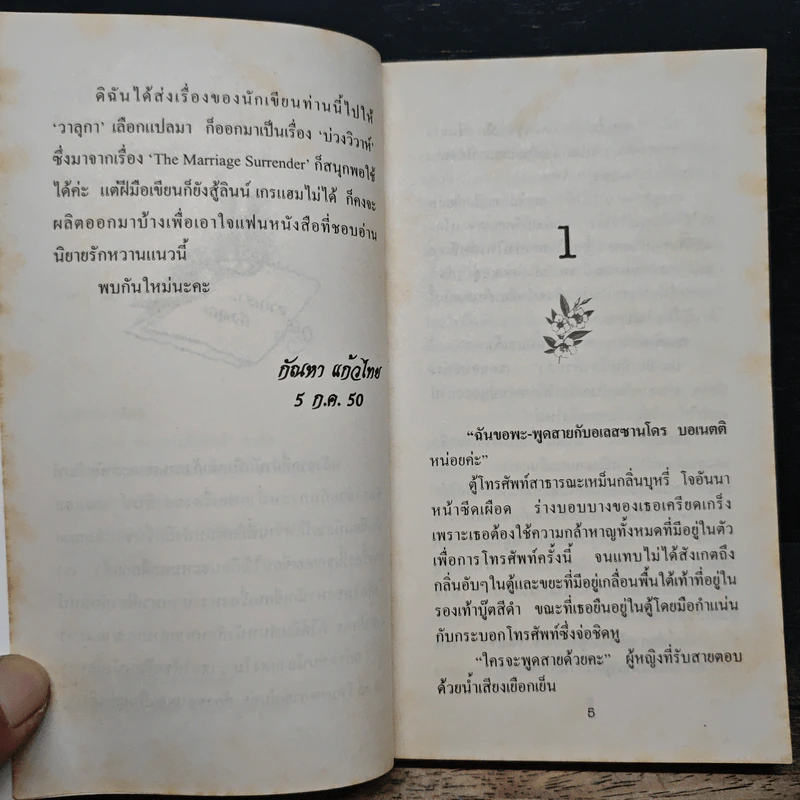 ดิฉันได้ส่งเรื่องของนักเขียนท่านนี้ไปให้
‘วาลุกา’ เลือกแปลมา ก็ออกมาเป็นเรื่อง ‘บ่วงวิวาห์’
ซึ่งมาจากเรื่อง ‘The Marriage Surrender’ ก็สนุกพอใช้
ได้ค่ะ แต่ฝีมือเขียนก็ยังสู้ลินน์ เกรแฮมไม่ได้ ก็คงจะ
ผลิตออกมาบ้างเพื่อเอาใจแฟนหนังสือที่ชอบอ่าน
นิยายรักหวานแนวนี้
พบกันใหม่นะคะ
กัณหา แก้วไทย
5 ก.ค. 50
1
“ฉันขอพะ-พูดสายกับอเลสซานโดร บอเนตติ
หน่อยค่ะ”
ตู้โทรศัพท์สาธารณะเหม็นกลิ่นบุหรี่ โจอันนา
หน้าซีดเผือด ร่างบอบบางของเธอเครียดเกร็ง
เพราะเธอต้องใช้ความกล้าหาญทั้งหมดที่มีอยู่ในตัว
เพื่อการโทรศัพท์ครั้งนี้ จนแทบไม่ได้สังเกตถึง
กลิ่นอับๆในตู้และขยะที่มีอยู่เกลื่อนพื้นใต้เท้าที่อยู่ใน
รองเท้าบู๊ตสีดำ ขณะที่เธอยืนอยู่ในตู้โดยมือกำแน่น
กับกระบอกโทรศัพท์ซึ่งจ่อชิดหู
“ใครจะพูดสายด้วยคะ” ผู้หญิงที่รับสายตอบ
ด้วยน้ำเสียงเยือกเย็น
5